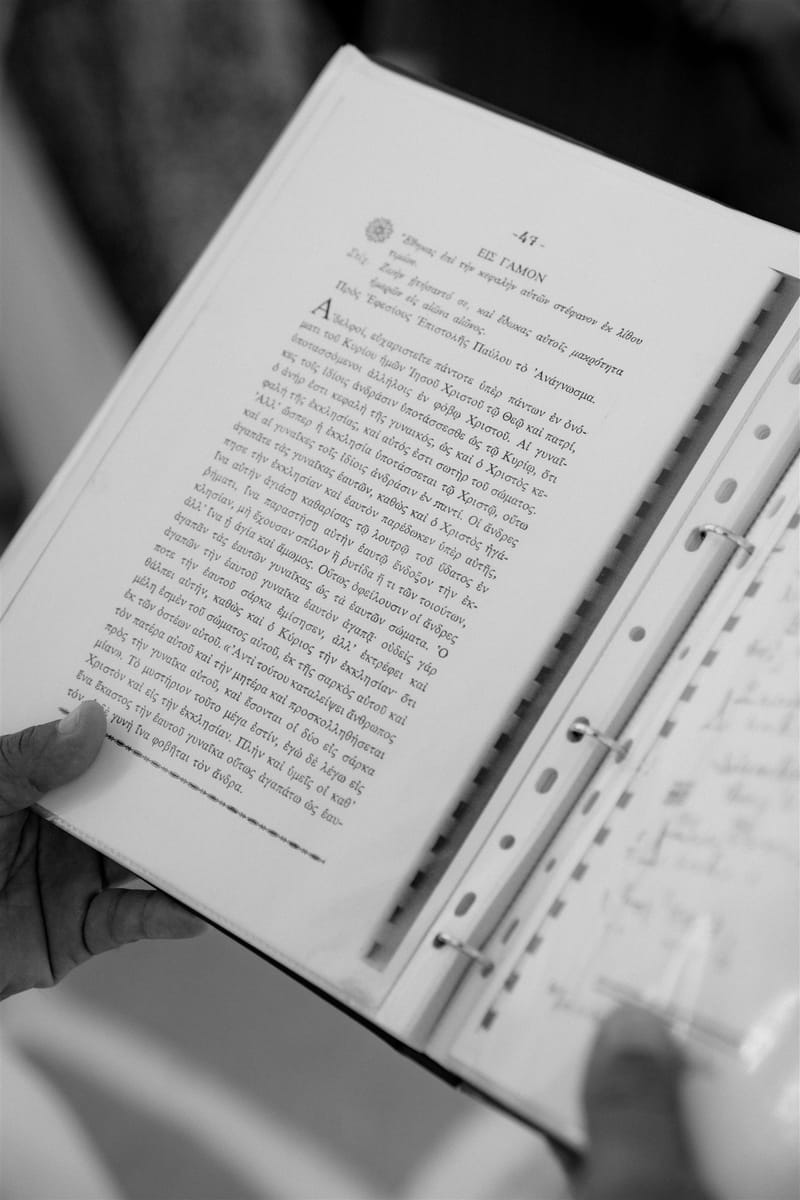 -47-
ΕΙΣ ΓΑΜΟΝ
Ἔθηκας ἐπὶ τὴν κεφαλὴν αὐτῶν στέφανον ἐκ λίθου
τιμίου.
Στίχ. Ζωὴν ᾐτήσαντό σε, καὶ ἔδωκας αὐτοῖς μακρότητα
ἡμερῶν εἰς αἰῶνα αἰῶνος.
Πρὸς Ἐφεσίους Ἐπιστολῆς Παύλου τὸ Ἀνάγνωσμα.
Ἀδελφοί, εὐχαριστεῖτε πάντοτε ὑπὲρ πάντων ἐν ὀνό-
ματι τοῦ Κυρίου ἡμῶν Ἰησοῦ Χριστοῦ τῷ Θεῷ καὶ πατρί,
ὑποτασσόμενοι ἀλλήλοις ἐν φόβῳ Χριστοῦ. Αἱ γυναῖ-
κες τοῖς ἰδίοις ἀνδράσιν ὑποτάσσεσθε ὡς τῷ Κυρίῳ, ὅτι
ὁ ἀνήρ ἐστι κεφαλὴ τῆς γυναικός, ὡς καὶ ὁ Χριστὸς κε-
φαλὴ τῆς ἐκκλησίας, καὶ αὐτός ἐστι σωτὴρ τοῦ σώματος.
Ἀλλ' ὥσπερ ἡ ἐκκλησία ὑποτάσσεται τῷ Χριστῷ, οὕτω
καὶ αἱ γυναῖκες τοῖς ἰδίοις ἀνδράσιν ἐν παντί. Οἱ ἄνδρες
ἀγαπᾶτε τὰς γυναῖκας ἑαυτῶν, καθὼς καὶ ὁ Χριστὸς ἠγά-
πησε τὴν ἐκκλησίαν καὶ ἑαυτὸν παρέδωκεν ὑπὲρ αὐτῆς,
ἵνα αὐτὴν ἁγιάσῃ καθαρίσας τῷ λουτρῷ τοῦ ὕδατος ἐν
ῥήματι, ἵνα παραστήσῃ αὐτὴν ἑαυτῷ ἔνδοξον τὴν ἐκ-
κλησίαν, μὴ ἔχουσαν σπίλον ἢ ῥυτίδα ἤ τι τῶν τοιούτων,
ἀλλ' ἵνα ᾖ ἁγία καὶ ἄμωμος. Οὕτως ὀφείλουσιν οἱ ἄνδρες
ἀγαπᾶν τὰς ἑαυτῶν γυναῖκας ὡς τὰ ἑαυτῶν σώματα. Ὁ
ἀγαπῶν τὴν ἑαυτοῦ γυναῖκα ἑαυτὸν ἀγαπᾷ· οὐδεὶς γάρ
ποτε τὴν ἑαυτοῦ σάρκα ἐμίσησεν, ἀλλ' ἐκτρέφει καὶ
θάλπει αὐτήν, καθὼς καὶ ὁ Κύριος τὴν ἐκκλησίαν· ὅτι
μέλη ἐσμὲν τοῦ σώματος αὐτοῦ, ἐκ τῆς σαρκὸς αὐτοῦ καὶ
ἐκ τῶν ὀστέων αὐτοῦ. «Ἀντὶ τούτου καταλείψει ἄνθρωπος
τὸν πατέρα αὐτοῦ καὶ τὴν μητέρα καὶ προσκολληθήσεται
πρὸς τὴν γυναῖκα αὐτοῦ, καὶ ἔσονται οἱ δύο εἰς σάρκα
μίαν». Τὸ μυστήριον τοῦτο μέγα ἐστίν, ἐγὼ δὲ λέγω εἰς
Χριστὸν καὶ εἰς τὴν ἐκκλησίαν. Πλὴν καὶ ὑμεῖς οἱ καθ'
ἕνα ἕκαστος τὴν ἑαυτοῦ γυναῖκα οὕτως ἀγαπάτω ὡς ἑαυ-
τόν, γυνὴ ἵνα φοβῆται τὸν ἄνδρα.